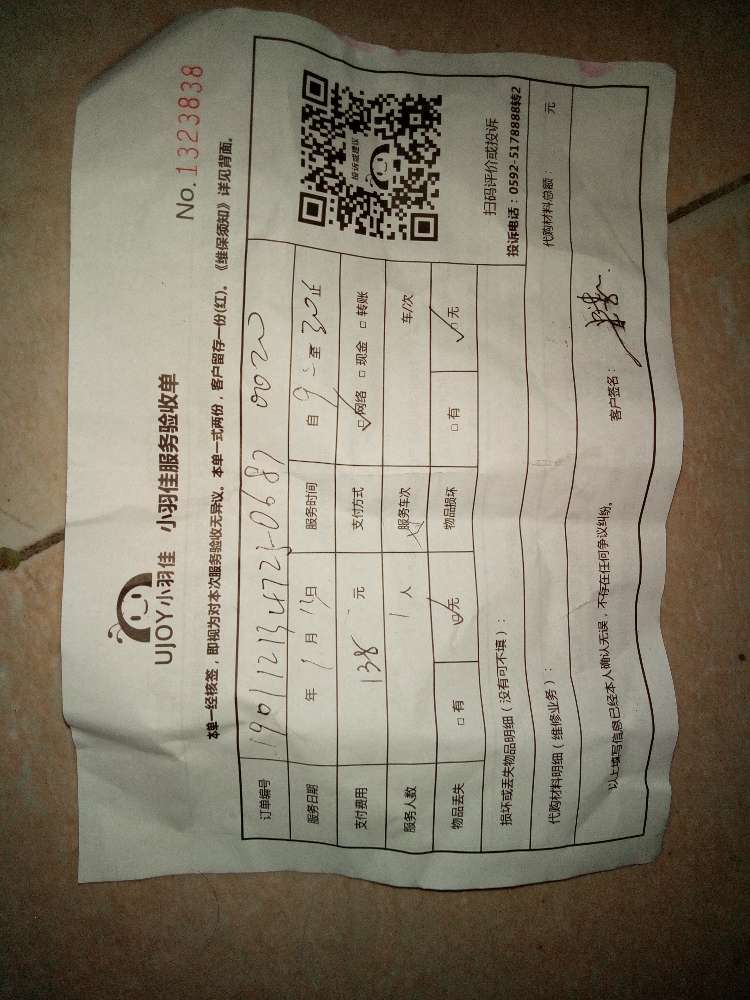 No.1323838
UJOY小羽佳 小羽佳服务验收单
本单一经核签，即视为对本次服务验收无异议。本单一式两份，客户留存一份(红)。《维保须知》详见背面。
订单编号
服务日期 年 1 月 13 日 服务时间 自 9 至 止
支付费用 138 元 支付方式 ☑网络 □现金 □转账
服务人数 1 人 服务车次 车/次
物品丢失 □有 ☑无 物品损坏 □有 ☑无
投诉或建议
扫码评价或投诉
投诉电话：0592-5178888转2
损坏或丢失物品明细（没有可不填）：
代购材料明细（维修业务）： 代购材料总额： 元
以上填写信息已经本人确认无误，不存在任何争议纠纷。 客户签名：